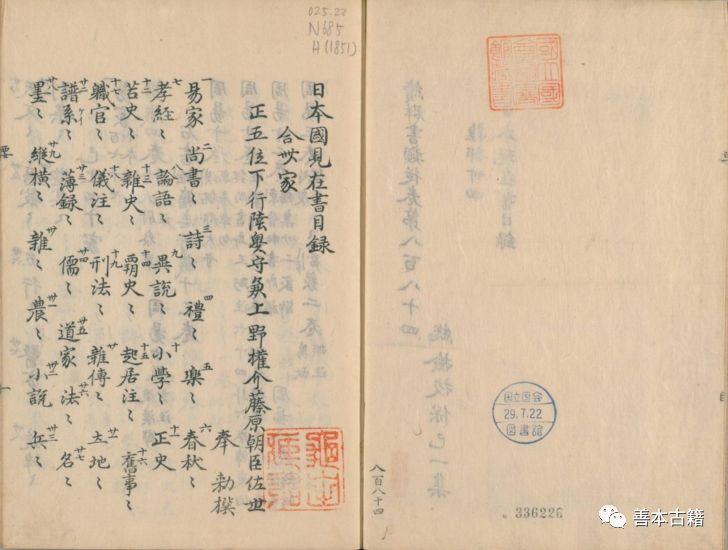 国立国会
29.7.22
図書館
336226
八百八十四
025.22
N685
H(1851)
日本國見在書目録
合卌家
正五位下行陸奥守兼上野權介藤原朝臣佐世
奉 勅撰
一易家 二尚書〻 三詩〻 四禮〻 五樂〻 六春秋〻
七孝経〻 八論語〻 九異説〻 十小學〻 十一正史
十二古史〻 十三雜史〻 十四覇史〻 十五起居注〻 十六舊事〻
十七職官〻 十八儀注〻 十九刑法〻 廿雜傳〻 廿一土地〻
廿二譜系〻 廿三薄録〻 廿四儒〻 廿五道家 廿六法〻 廿七名〻
廿八墨〻 廿九縱横〻 卅雜〻 卅一農〻 卅二小説 卅三兵〻
善本古籍